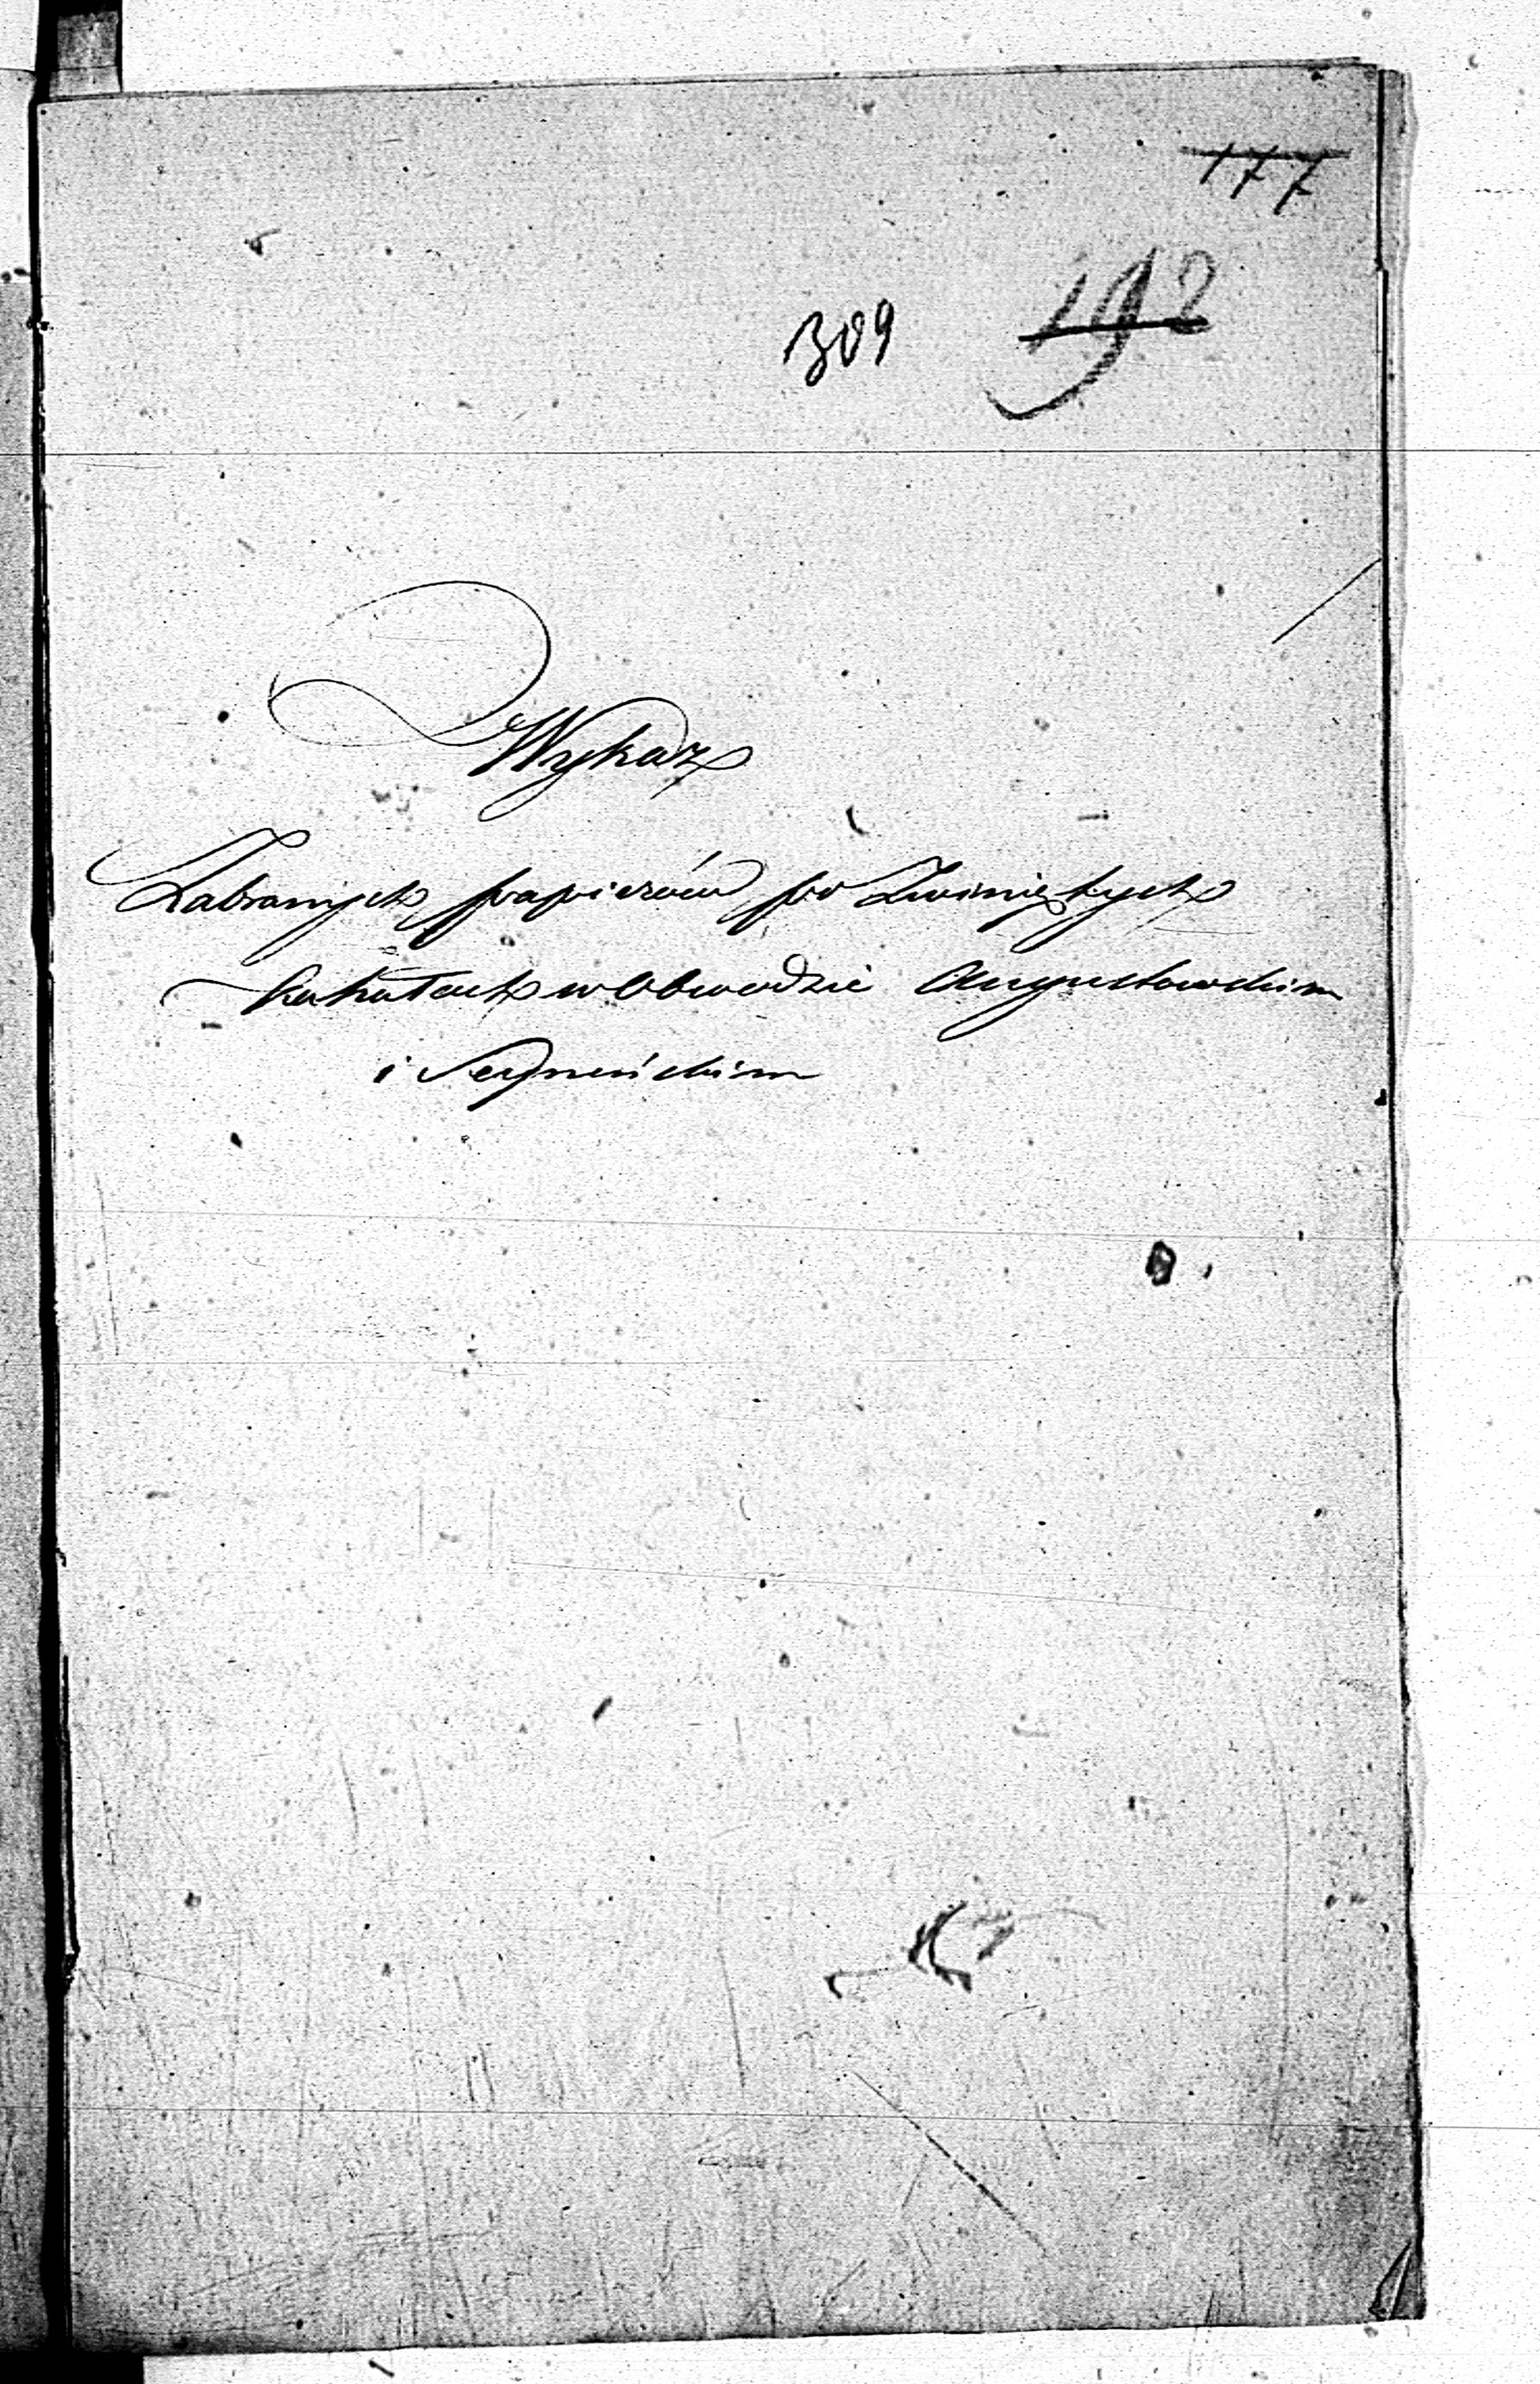 177
192
309
Wykaz
Zabranych papierów po Zwiniętych
Kahałach w Obwodzie Augustowskim
i Seyneńskim